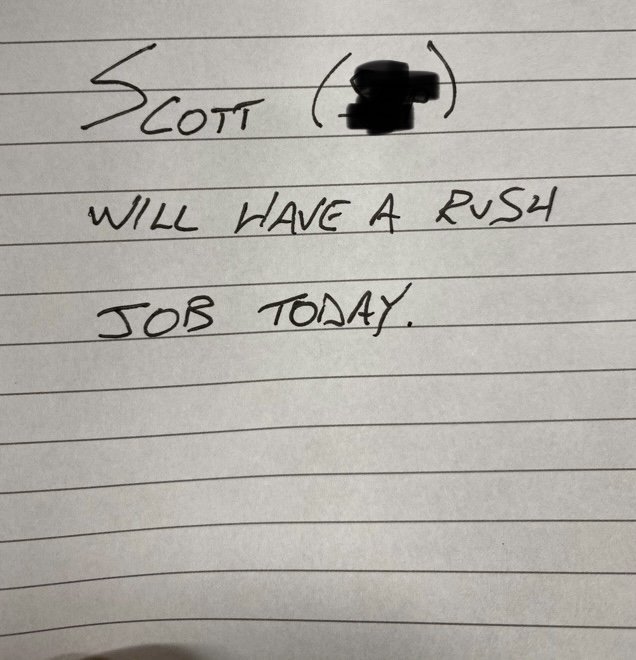 SCOTT ( )
WILL HAVE A RUSH
JOB TODAY.